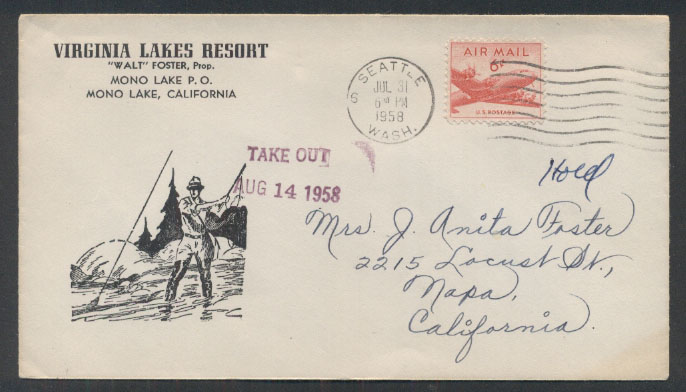 VIRGINIA LAKES RESORT
"WALT" FOSTER, Prop.
MONO LAKE P. O.
MONO LAKE, CALIFORNIA
SEATTLE
JUL 31
PM
1958
WASH.
AIR MAIL
6¢
U.S. POSTAGE
TAKE OUT
AUG 14 1958
Hold
Mrs. J. Anita Foster
2215 Locust St.,
Napa,
California.